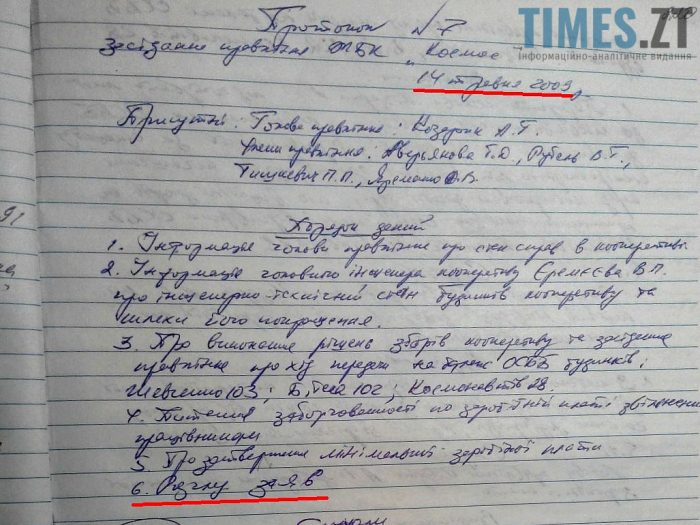 TIMES.ZT
Інформаційно-аналітичне видання
Протокол №7
засідання правління ЖБК "Космос"
14 травня 2009р.
Присутні: Голова правління: А.Г.
Члени правління: Аверьянова Т.О., Рубель В.Т.,
Тишкевич П.П., Яременко О.В.
91
Порядок денний
1. Інформація голови правління про стан справ в кооперативі
2. Інформація головного інженера кооперативу Єремєєва В.П.
про інженерно-технічний стан будинків кооперативу та
шляхи його покращення.
3. Про виконання рішень зборів кооперативу та засідання
правління про хід передачі на баланс ОСББ будинків:
Шевченко 103; 102; Космонавтів 28.
4. Питання заборгованості по заробітній платі звільненим
працівникам
5. Про затвердження мінімальної заробітної плати
6. Розгляд заяв